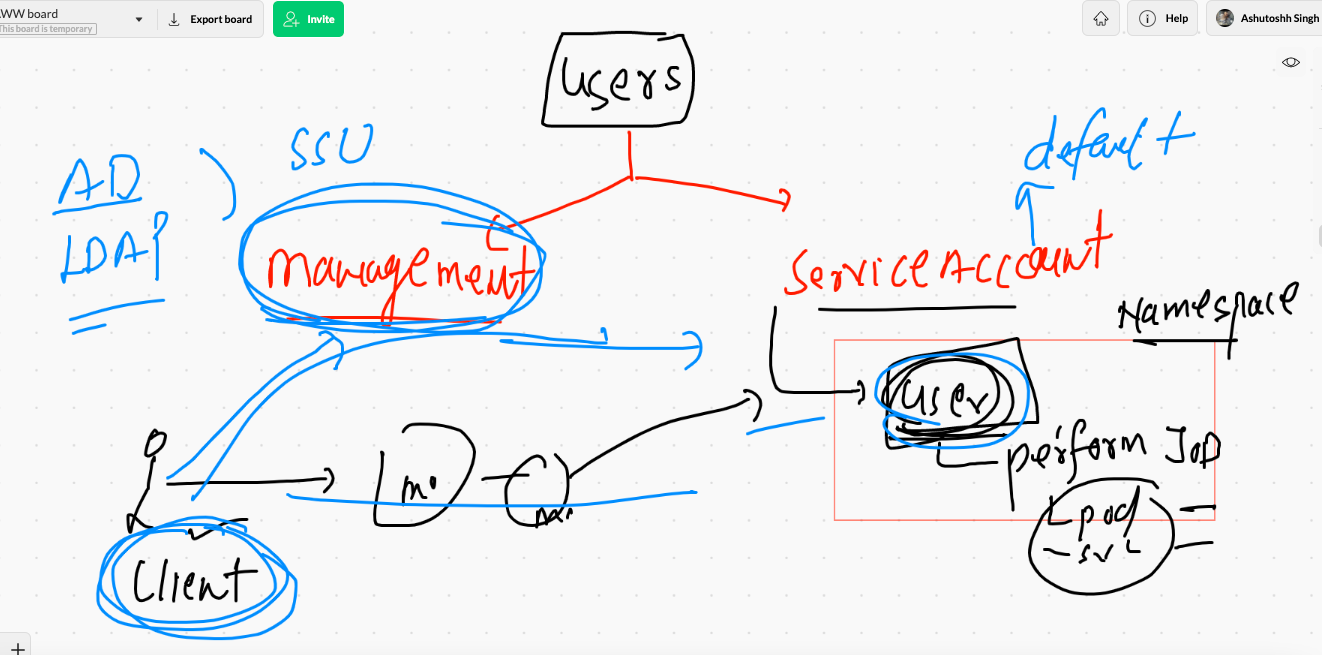 AWW board
This board is temporary
Export board
Invite
Help
Ashutoshh Singh
users
SSU
AD
LDAP
management
default
ServiceAccount
Namespace
user
perform JOB
pod
- svc
Client